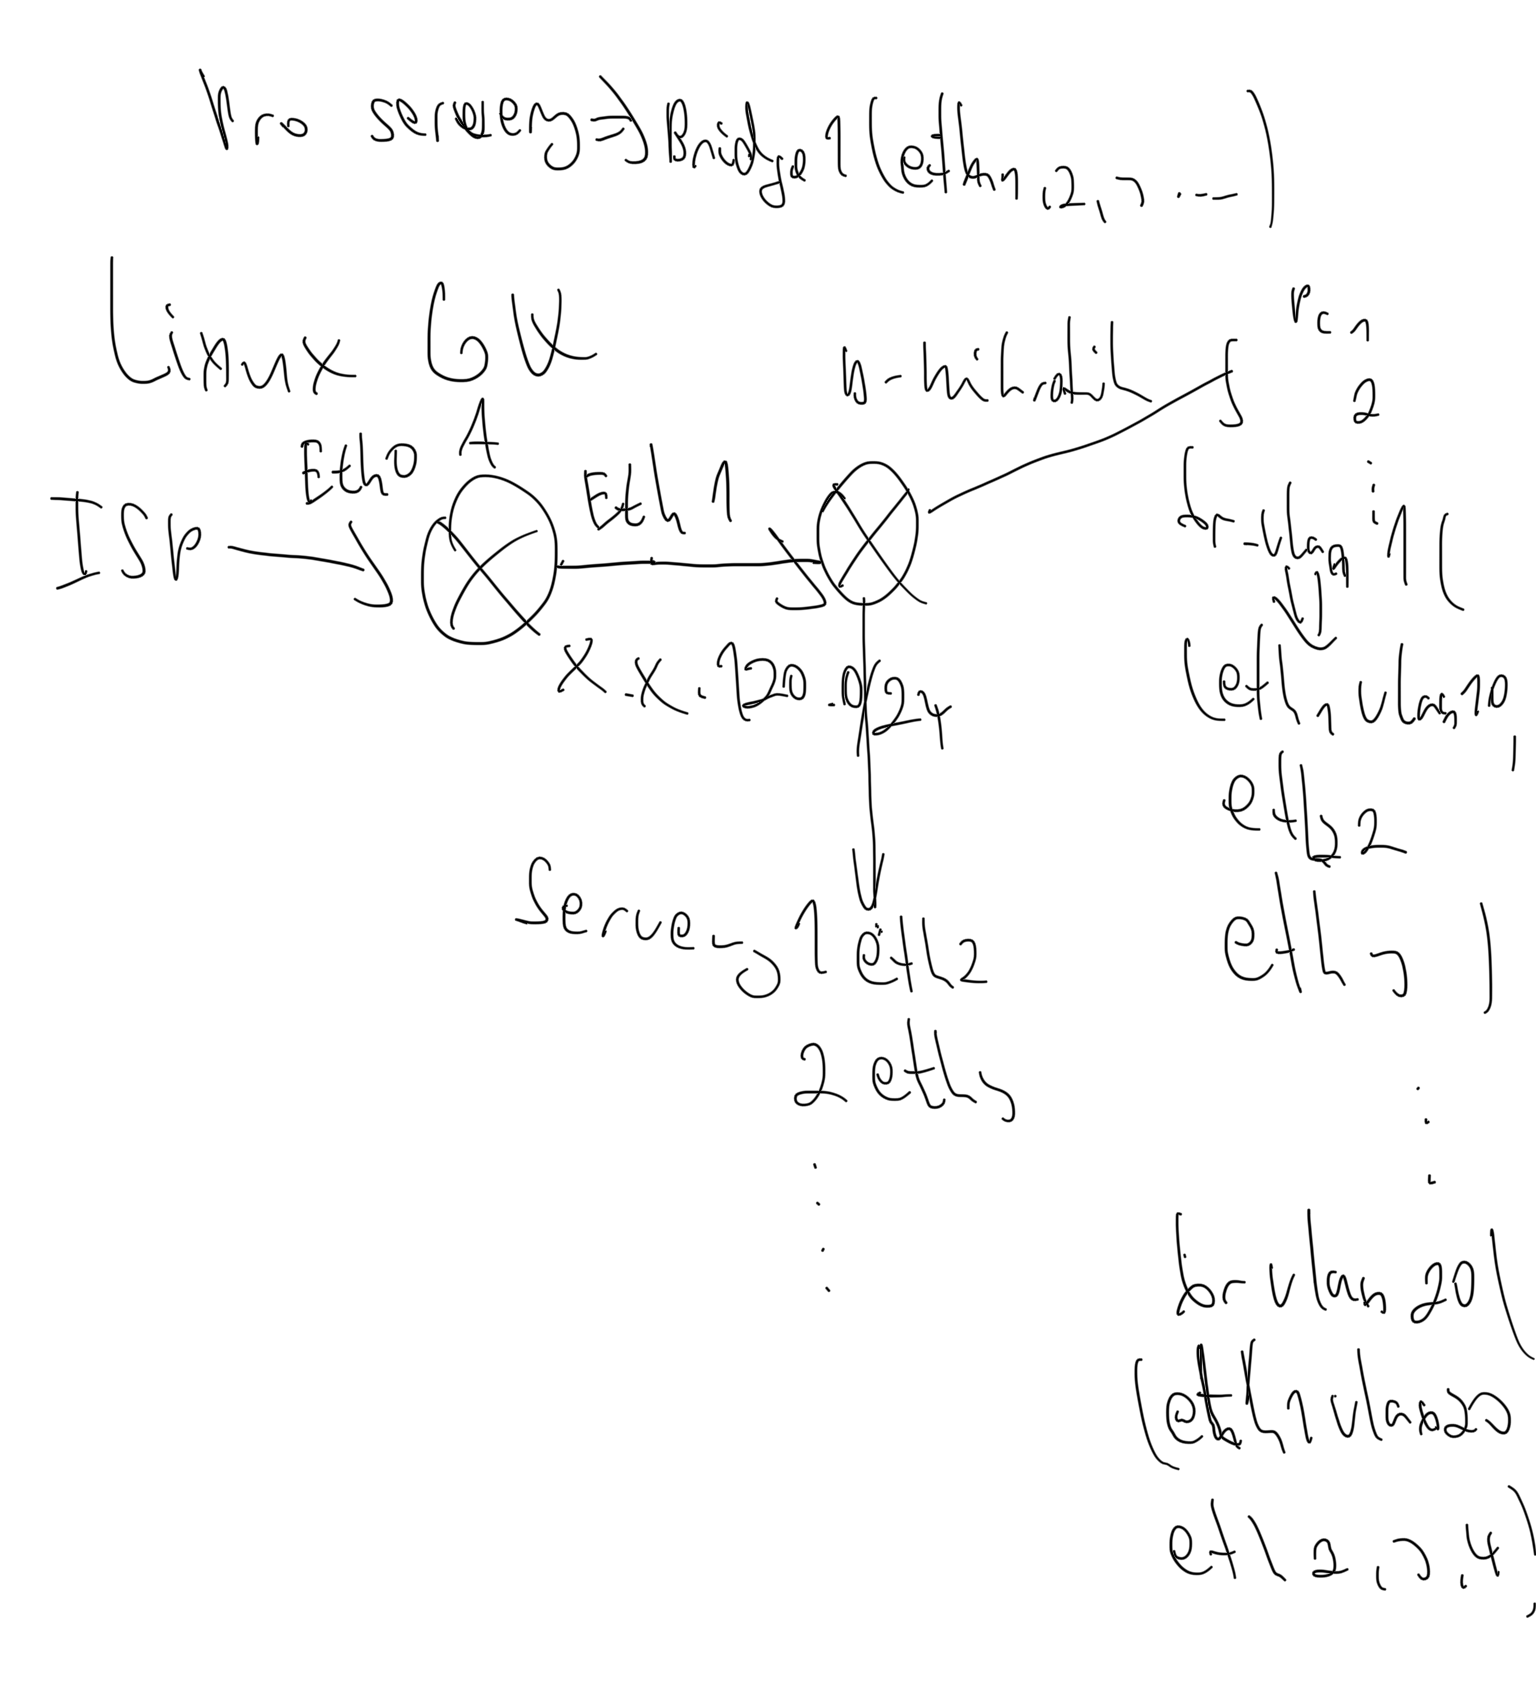 Pro servery => Bridge 1 (eth1, 2, 3 ...)
Linux GW
A
Eth0
ISP
Eth 1
X.X.120.0/24
B-Mikrotik
PC 1
2
br-vlan 1 (
(eth1 vlan10,
eth2
eth3 )
Servery 1 eth2
2 eth3
br vlan 20 (
(eth1 vlan20
eth 2, 3, 4),